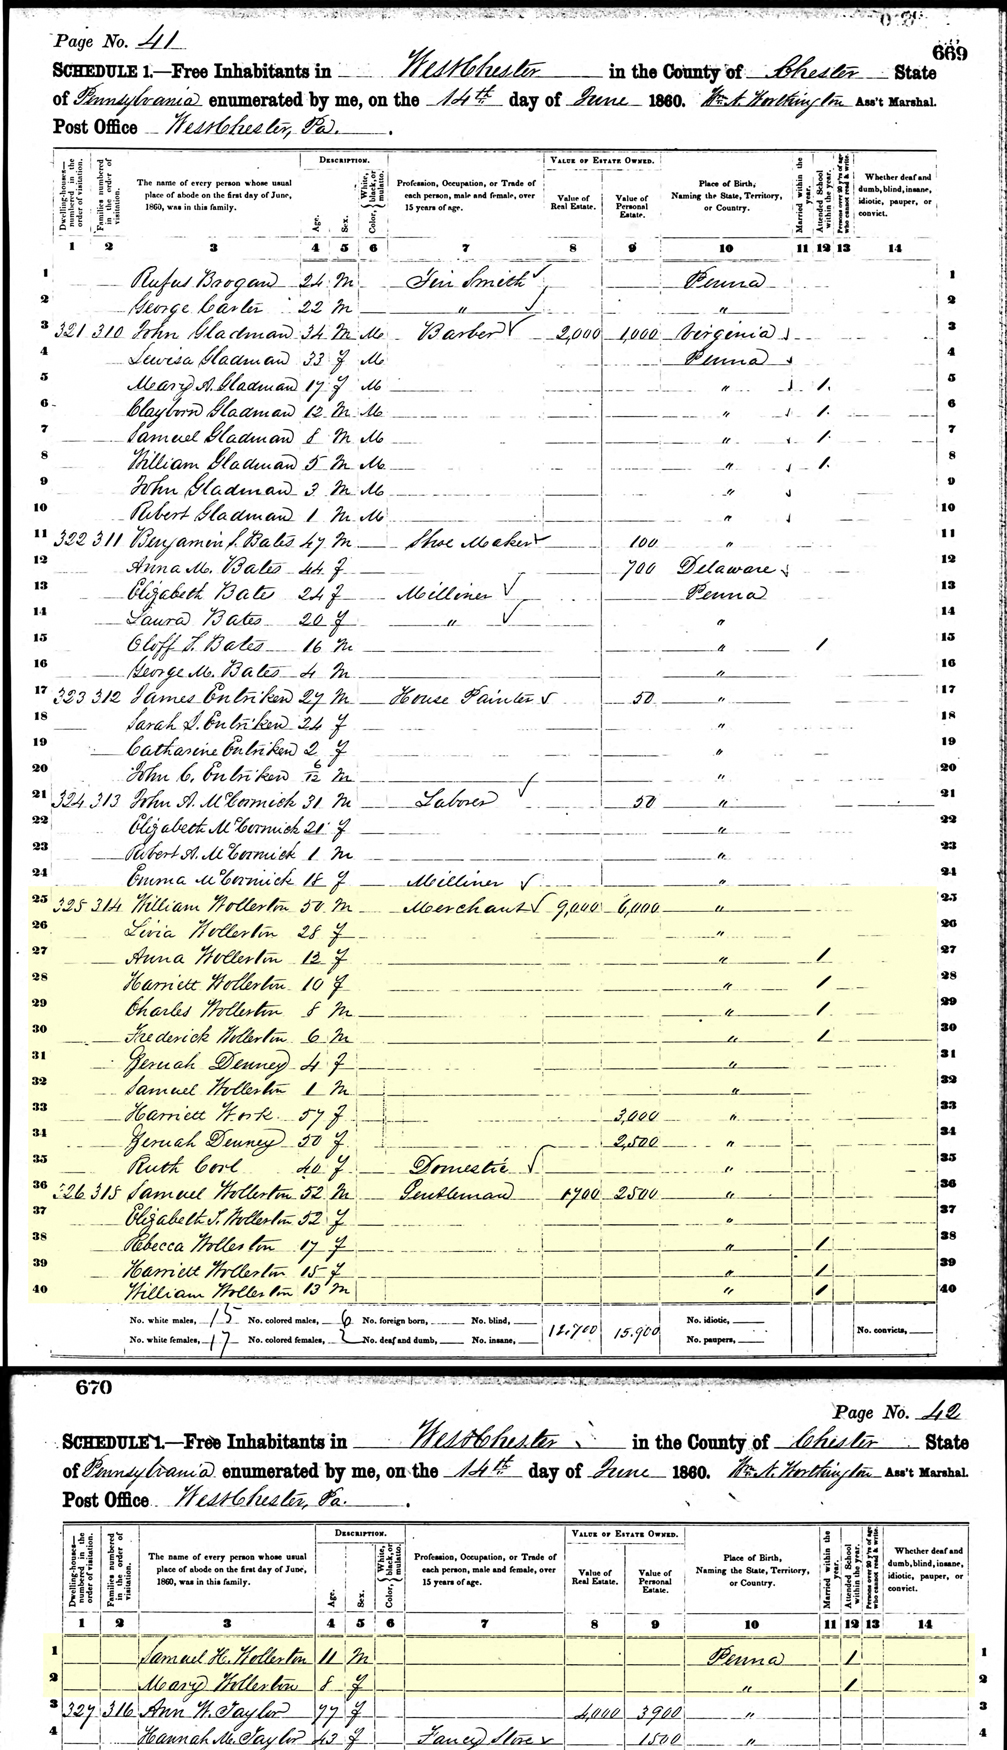 Page No. 41
669
SCHEDULE 1.—Free Inhabitants in West Chester in the County of Chester State
of Pennsylvania enumerated by me, on the 14th day of June 1860. Wm. A. Worthington Ass't Marshal.
Post Office West Chester, Pa.
DESCRIPTION. VALUE OF ESTATE OWNED.
Dwelling-houses—numbered in the order of visitation. Families numbered in the order of visitation. The name of every person whose usual place of abode on the first day of June, 1860, was in this family. Age. Sex. Color, White, black, or mulatto. Profession, Occupation, or Trade of each person, male and female, over 15 years of age. Value of Real Estate. Value of Personal Estate. Place of Birth, Naming the State, Territory, or Country. Married within the year. Attended School within the year. Persons over 20 y'rs of age who cannot read & write. Whether deaf and dumb, blind, insane, idiotic, pauper, or convict.
1 2 3 4 5 6 7 8 9 10 11 12 13 14
1 Rufus Brogan 24 M Tin Smith Penna 1
2 George Carter 22 M " " 2
3 321 310 John Gladman 34 M M Barber 2,000 1,000 Virginia 3
4 Lewisa Gladman 33 f M Penna 4
5 Mary A. Gladman 17 f M " 1 5
6 Clayborn Gladman 12 M M " 1 6
7 Samuel Gladman 8 M M " 1 7
8 William Gladman 5 M M " 1 8
9 John Gladman 3 M M " 9
10 Robert Gladman 1 M M " 10
11 322 311 Benjamin S. Bates 47 M Shoe Maker 100 " 11
12 Anna M. Bates 44 f 700 Delaware 12
13 Elizabeth Bates 24 f Milliner Penna 13
14 Laura Bates 20 f " " 14
15 Oloff S. Bates 16 M " 1 15
16 George M. Bates 4 M " 16
17 323 312 James Entriken 27 M House Painter 50 " 17
18 Sarah J. Entriken 24 f " 18
19 Catharine Entriken 2 f " 19
20 John C. Entriken 6/12 M " 20
21 324 313 John A. McCormick 31 M Laborer 50 " 21
22 Elizabeth McCormick 21 f " 22
23 Robert A. McCormick 1 M " 23
24 Emma McCormick 18 f Milliner " 24
25 325 314 William Wollerton 50 M Merchant 9,000 6,000 " 25
26 Livia Wollerton 28 f " 26
27 Anna Wollerton 12 f " 1 27
28 Harriett Wollerton 10 f " 1 28
29 Charles Wollerton 8 M " 1 29
30 Frederick Wollerton 6 M " 1 30
31 Zeruah Denney 4 f " 31
32 Samuel Wollerton 1 M " 32
33 Harriett Work 57 f 3,000 " 33
34 Zeruah Denney 50 f 2,500 " 34
35 Ruth Corl 40 f Domestic " 35
36 326 315 Samuel Wollerton 52 M Gentleman 1700 2500 " 36
37 Elizabeth T. Wollerton 52 f " 37
38 Rebecca Wollerton 17 f " 1 38
39 Harriett Wollerton 15 f " 1 39
40 William Wollerton 13 M " 1 40
No. white males, 15 No. colored males, 6 No. foreign born, No. blind, 12,700 15,900 No. idiotic,
No. white females, 17 No. colored females, 2 No. deaf and dumb, No. insane, No. paupers, No. convicts,
670
Page No. 42
SCHEDULE 1.—Free Inhabitants in West Chester in the County of Chester State
of Pennsylvania enumerated by me, on the 14th day of June 1860. Wm. A. Worthington Ass't Marshal.
Post Office West Chester, Pa.
DESCRIPTION. VALUE OF ESTATE OWNED.
Dwelling-houses—numbered in the order of visitation. Families numbered in the order of visitation. The name of every person whose usual place of abode on the first day of June, 1860, was in this family. Age. Sex. Color, White, black, or mulatto. Profession, Occupation, or Trade of each person, male and female, over 15 years of age. Value of Real Estate. Value of Personal Estate. Place of Birth, Naming the State, Territory, or Country. Married within the year. Attended School within the year. Persons over 20 y'rs of age who cannot read & write. Whether deaf and dumb, blind, insane, idiotic, pauper, or convict.
1 2 3 4 5 6 7 8 9 10 11 12 13 14
1 Samuel H. Wollerton 11 M Penna 1 1
2 Mary Wollerton 8 f " 1 2
3 327 316 Ann W. Taylor 77 f 4,000 3900 " 3
4 Hannah M. Taylor 43 f Fancy Store 1500 " 4